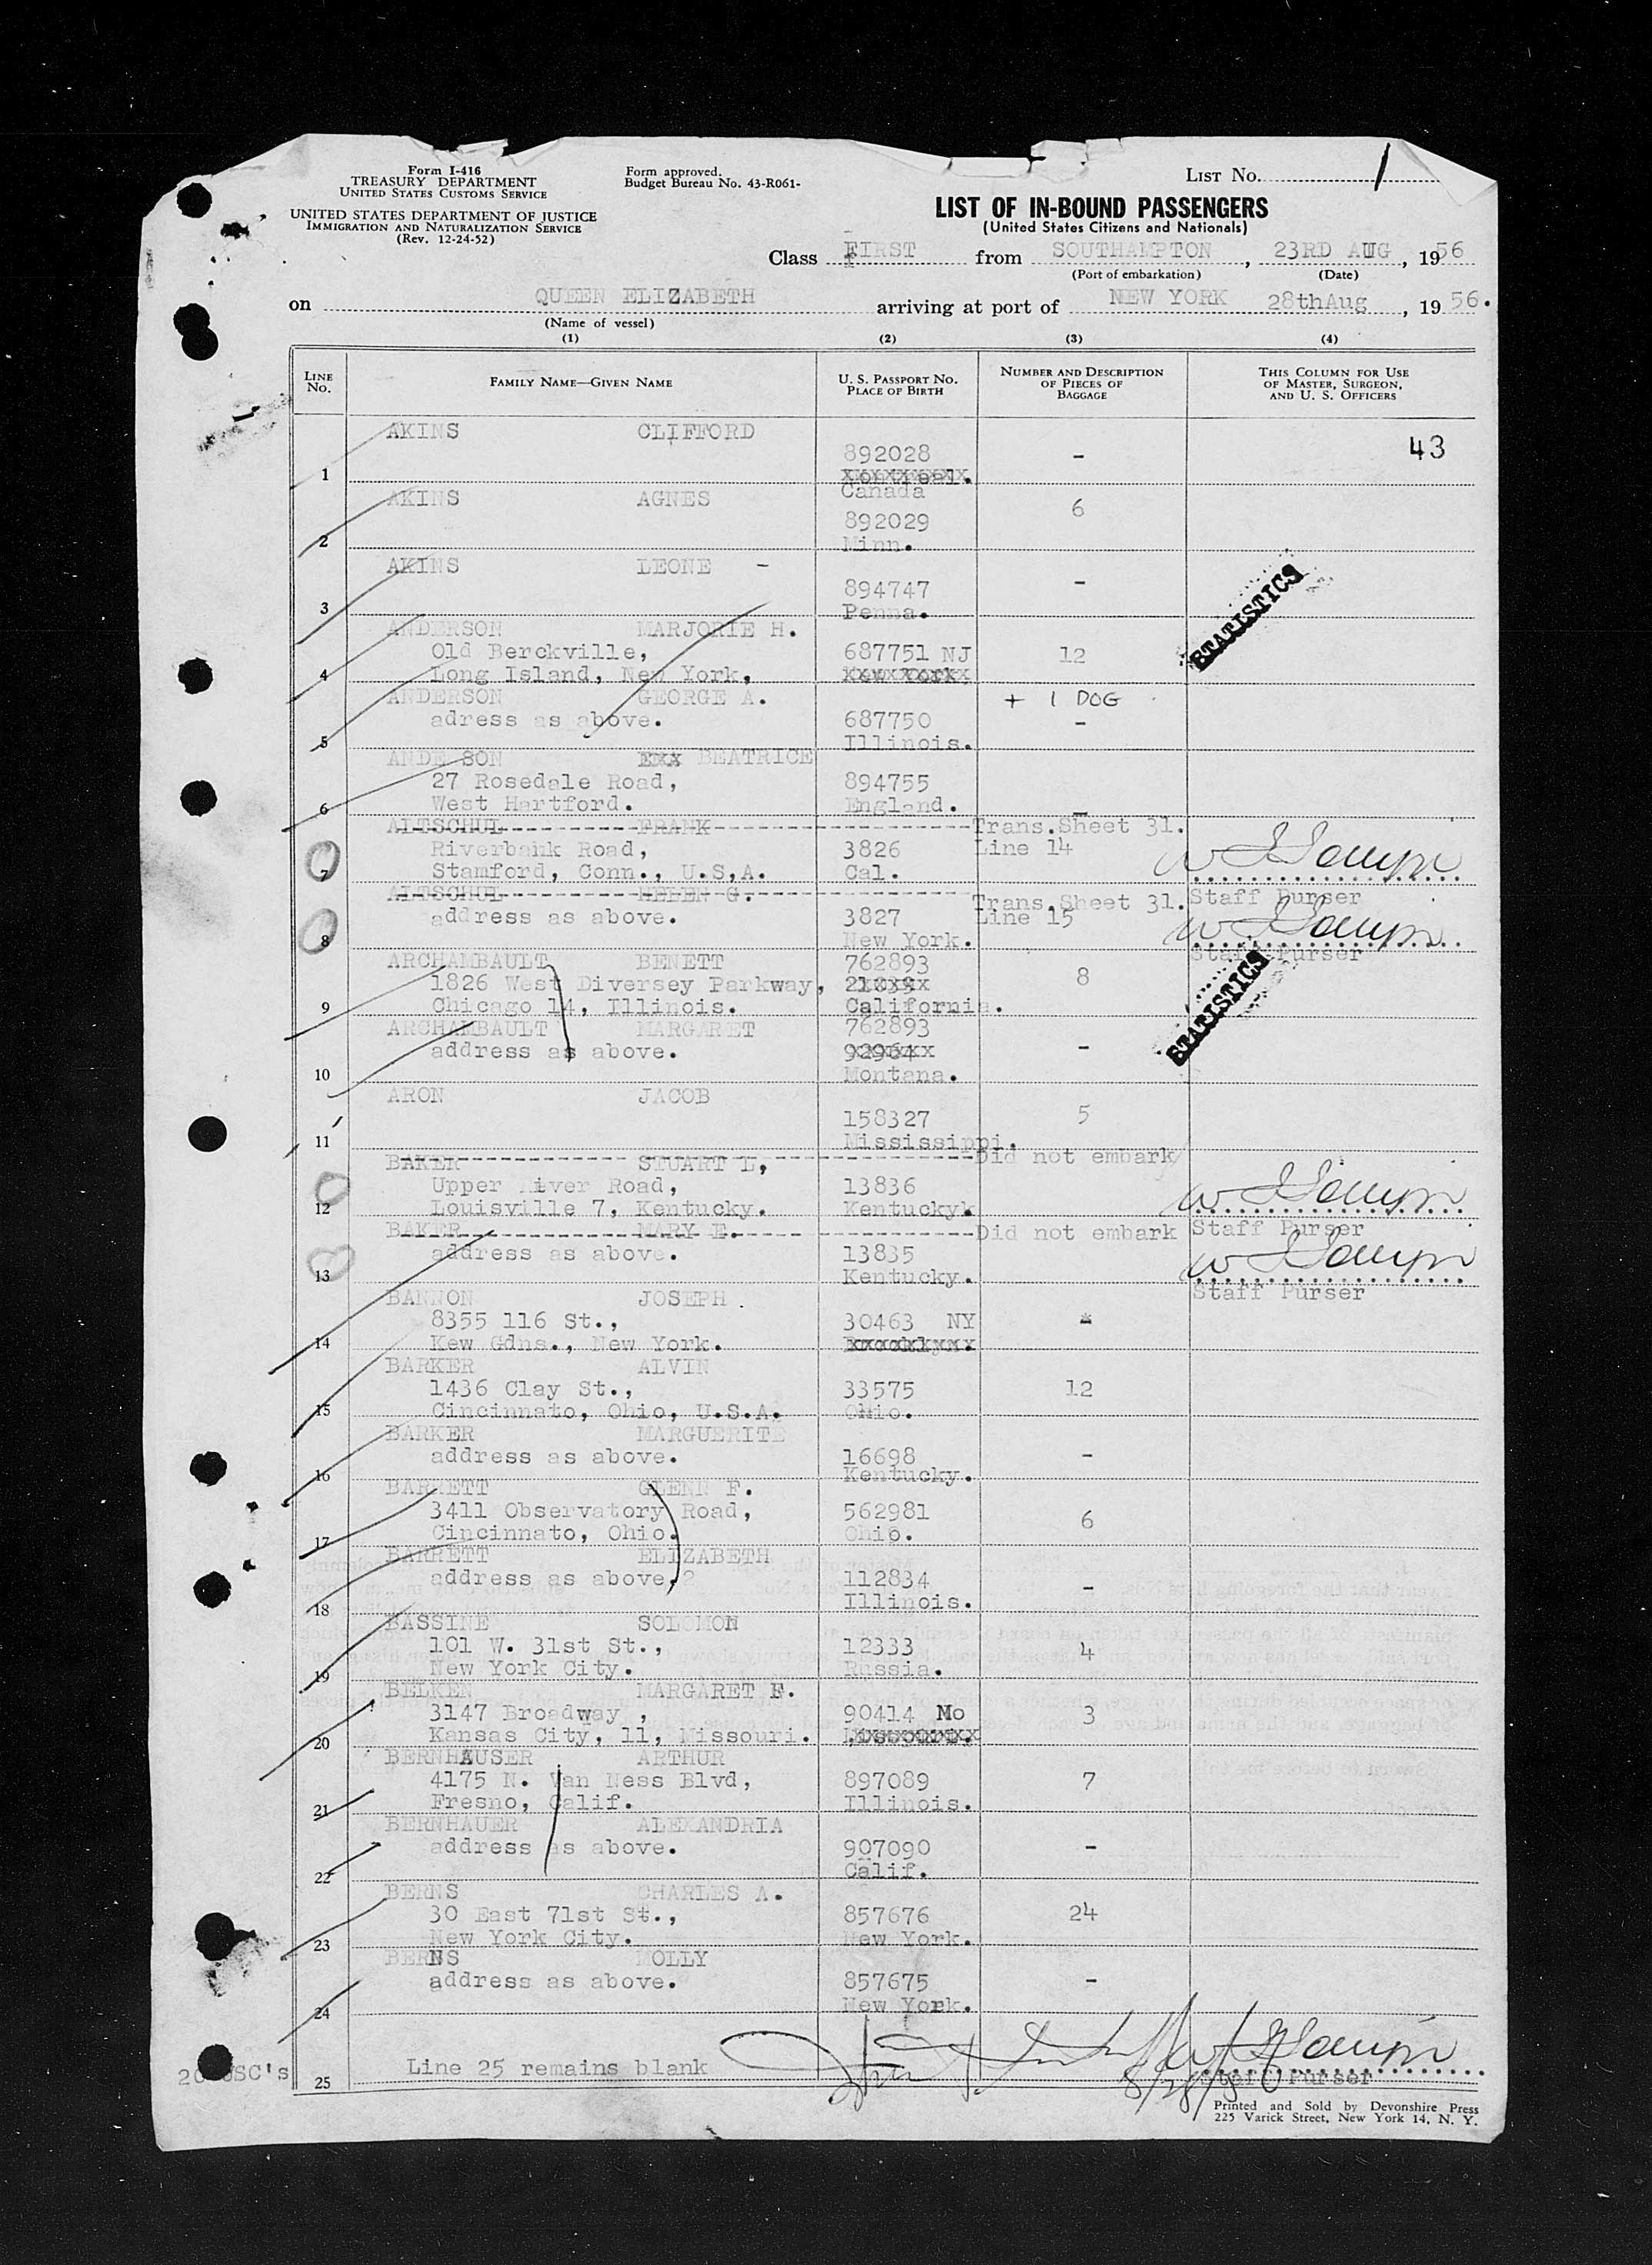 Form I-416
TREASURY DEPARTMENT
UNITED STATES CUSTOMS SERVICE
UNITED STATES DEPARTMENT OF JUSTICE
IMMIGRATION AND NATURALIZATION SERVICE
(Rev. 12-24-52)
Form approved.
Budget Bureau No. 43-R061-
LIST No. 1
LIST OF IN-BOUND PASSENGERS
(United States Citizens and Nationals)
Class FIRST from SOUTHAMPTON, 23RD AUG, 1956
(Port of embarkation) (Date)
on QUEEN ELIZABETH arriving at port of NEW YORK 28thAug, 1956.
(Name of vessel)
(1) (2) (3) (4)
LINE No. FAMILY NAME—GIVEN NAME U. S. PASSPORT No. PLACE OF BIRTH NUMBER AND DESCRIPTION OF PIECES OF BAGGAGE THIS COLUMN FOR USE OF MASTER, SURGEON, AND U. S. OFFICERS
AKINS CLIFFORD
892028 - 43
1 Montreal.
Canada
AKINS AGNES 6
892029
2 Minn.
AKINS LEONE -
894747 -
3 Penna.
STATISTICS
ANDERSON MARJORIE H.
Old Berckville, 687751 NJ 12
4 Long Island, New York, New York
ANDERSON GEORGE A. + 1 DOG
adress as above. 687750 -
5 Illinois.
ANDE SON BEATRICE
27 Rosedale Road, 894755
6 West Hartford. England. -
ALTSCHUL FRANK Trans.Sheet 31.
Riverbank Road, 3826 Line 14
7 Stamford, Conn., U.S.A. Cal.
ALTSCHUL HELEN G. Trans.Sheet 31. Staff Purser
address as above. 3827 Line 15
8 New York.
Staff Purser
ARCHAMBAULT BENETT 762893
1826 West Diversey Parkway, 8
9 Chicago 14, Illinois. California.
STATISTICS
ARCHAMBAULT MARGARET 762893
address as above. 92964 -
10 Montana.
ARON JACOB
158327 5
11 Mississippi.
BAKER STUART L, Did not embark
Upper iver Road, 13836
12 Louisville 7, Kentucky. Kentucky
BAKER MARY E. Did not embark Staff Purser
address as above. 13835
13 Kentucky.
Staff Purser
BANNON JOSEPH.
8355 116 St., 30463 NY
14 Kew Gdns., New York.
BARKER ALVIN
1436 Clay St., 33575 12
15 Cincinnato, Ohio, U.S.A. Ohio.
BARKER MARGUERITE
address as above. 16698 -
16 Kentucky.
BARRETT GLENN F.
3411 Observatory Road, 562981 6
17 Cincinnato, Ohio. Ohio.
BARRETT ELIZABETH
address as above. 112834 -
18 Illinois.
BASSINE SOLOMON
101 W. 31st St., 12333 4
19 New York City. Russia.
BELKEN MARGARET F.
3147 Broadway , 90414 Mo 3
20 Kansas City, 11, Missouri.
BERNHAUSER ARTHUR
4175 N. Van Ness Blvd, 897089 7
21 Fresno, Calif. Illinois.
BERNHAUER ALEXANDRIA
address as above. 907090 -
22 Calif.
BERNS CHARLES A.
30 East 71st St., 857676 24
23 New York City. New York.
BERNS MOLLY
address as above. 857675 -
24 New York.
20 USC's
25 Line 25 remains blank
Staff Purser
Printed and Sold by Devonshire Press
225 Varick Street, New York 14, N. Y.